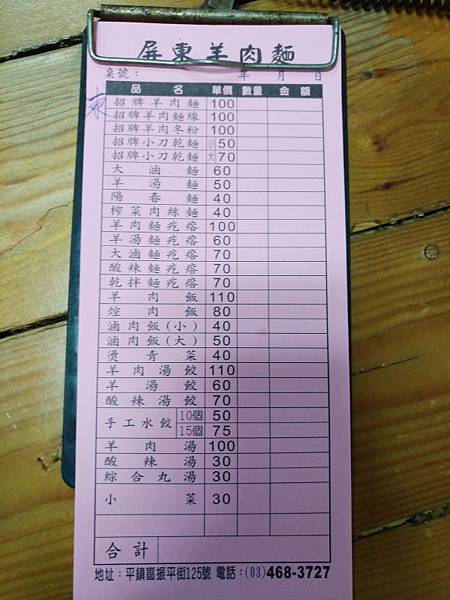 屏東羊肉麵
桌號： 年 月 日
品名 單價 數量 金額
東
招牌羊肉麵 100
招牌羊肉麵線 100
招牌羊肉冬粉 100
招牌小刀乾麵 小 50
招牌小刀乾麵 大 70
大滷麵 60
羊湯麵 50
陽春麵 40
榨菜肉絲麵 40
羊肉麵疙瘩 100
羊湯麵疙瘩 60
大滷麵疙瘩 70
酸辣麵疙瘩 70
乾拌麵疙瘩 70
羊肉飯 110
焢肉飯 80
滷肉飯(小) 40
滷肉飯(大) 50
燙青菜 40
羊肉湯餃 110
羊湯餃 60
酸辣湯餃 70
手工水餃 10個 50
15個 75
羊肉湯 100
酸辣湯 30
綜合丸湯 30
小菜 30
合計
地址：平鎮區振平街125號 電話：(03)468-3727